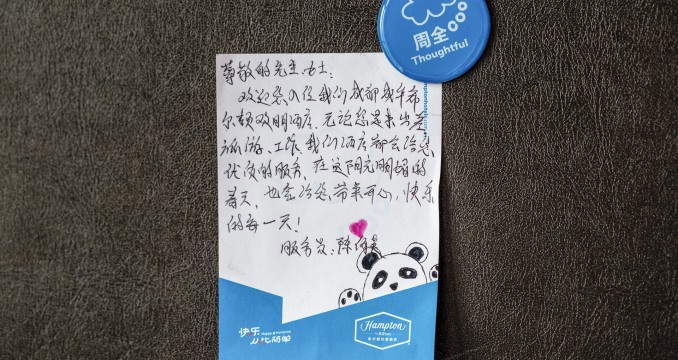 周全
Thoughtful
尊敬的先生.女士:
欢迎您入住我们成都成华希
尔顿欢朋酒店.无论您是来出差
旅游、工作、我们酒店都会给您
优质的服务.在这阳光明媚的
春天,也会给您带来开心,快乐
的每一天!
服务员:陈
快乐
从此简单
Hampton
by Hilton
希尔顿欢朋酒店